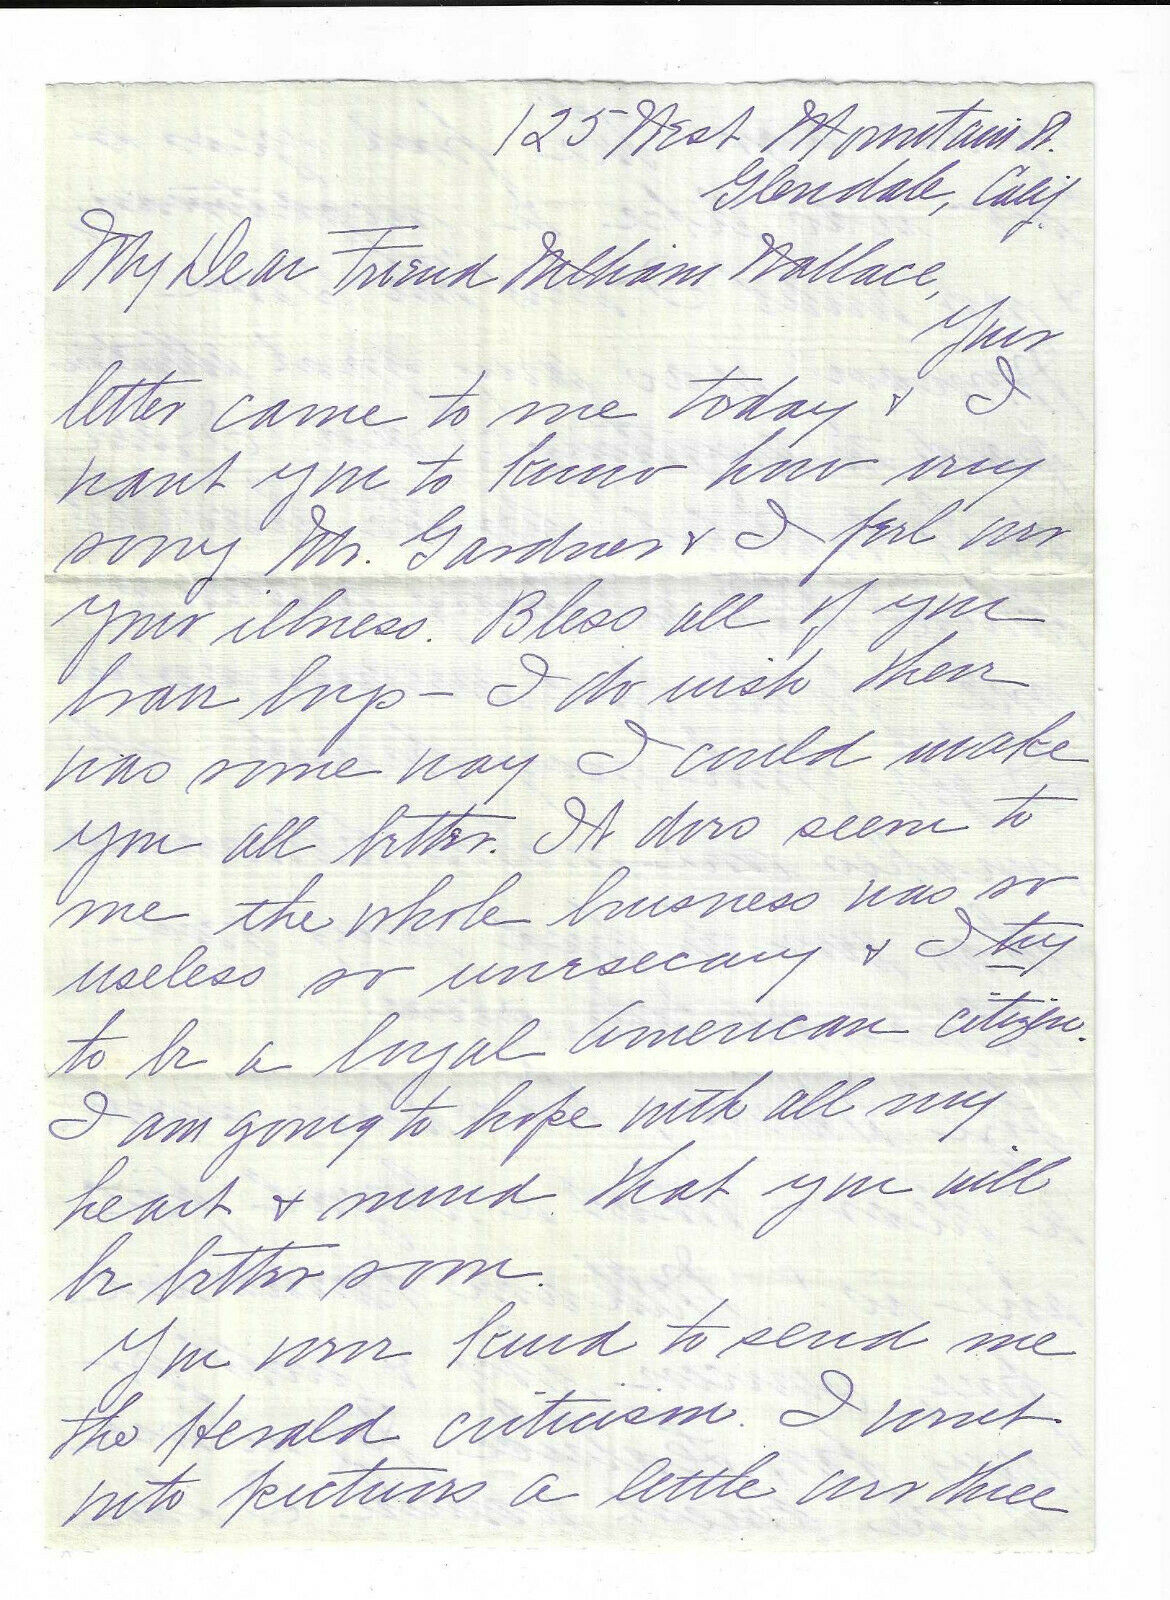 125 West Mountain St.
Glendale, Calif.
My Dear Friend William Wallace,
Your
letter came to me today & I
want you to know how very
sorry Mr. Gardner & I feel over
your illness. Bless all of you
brave boys - I do wish there
was some way I could make
you all better. It does seem to
me the whole busness was so
useless so unessecary & I try
to be a loyal American citizen.
I am going to hope with all my
heart & mind that you will
be better soon.
You were kind to send me
the Herald criticism. I went
into pictures a little over three